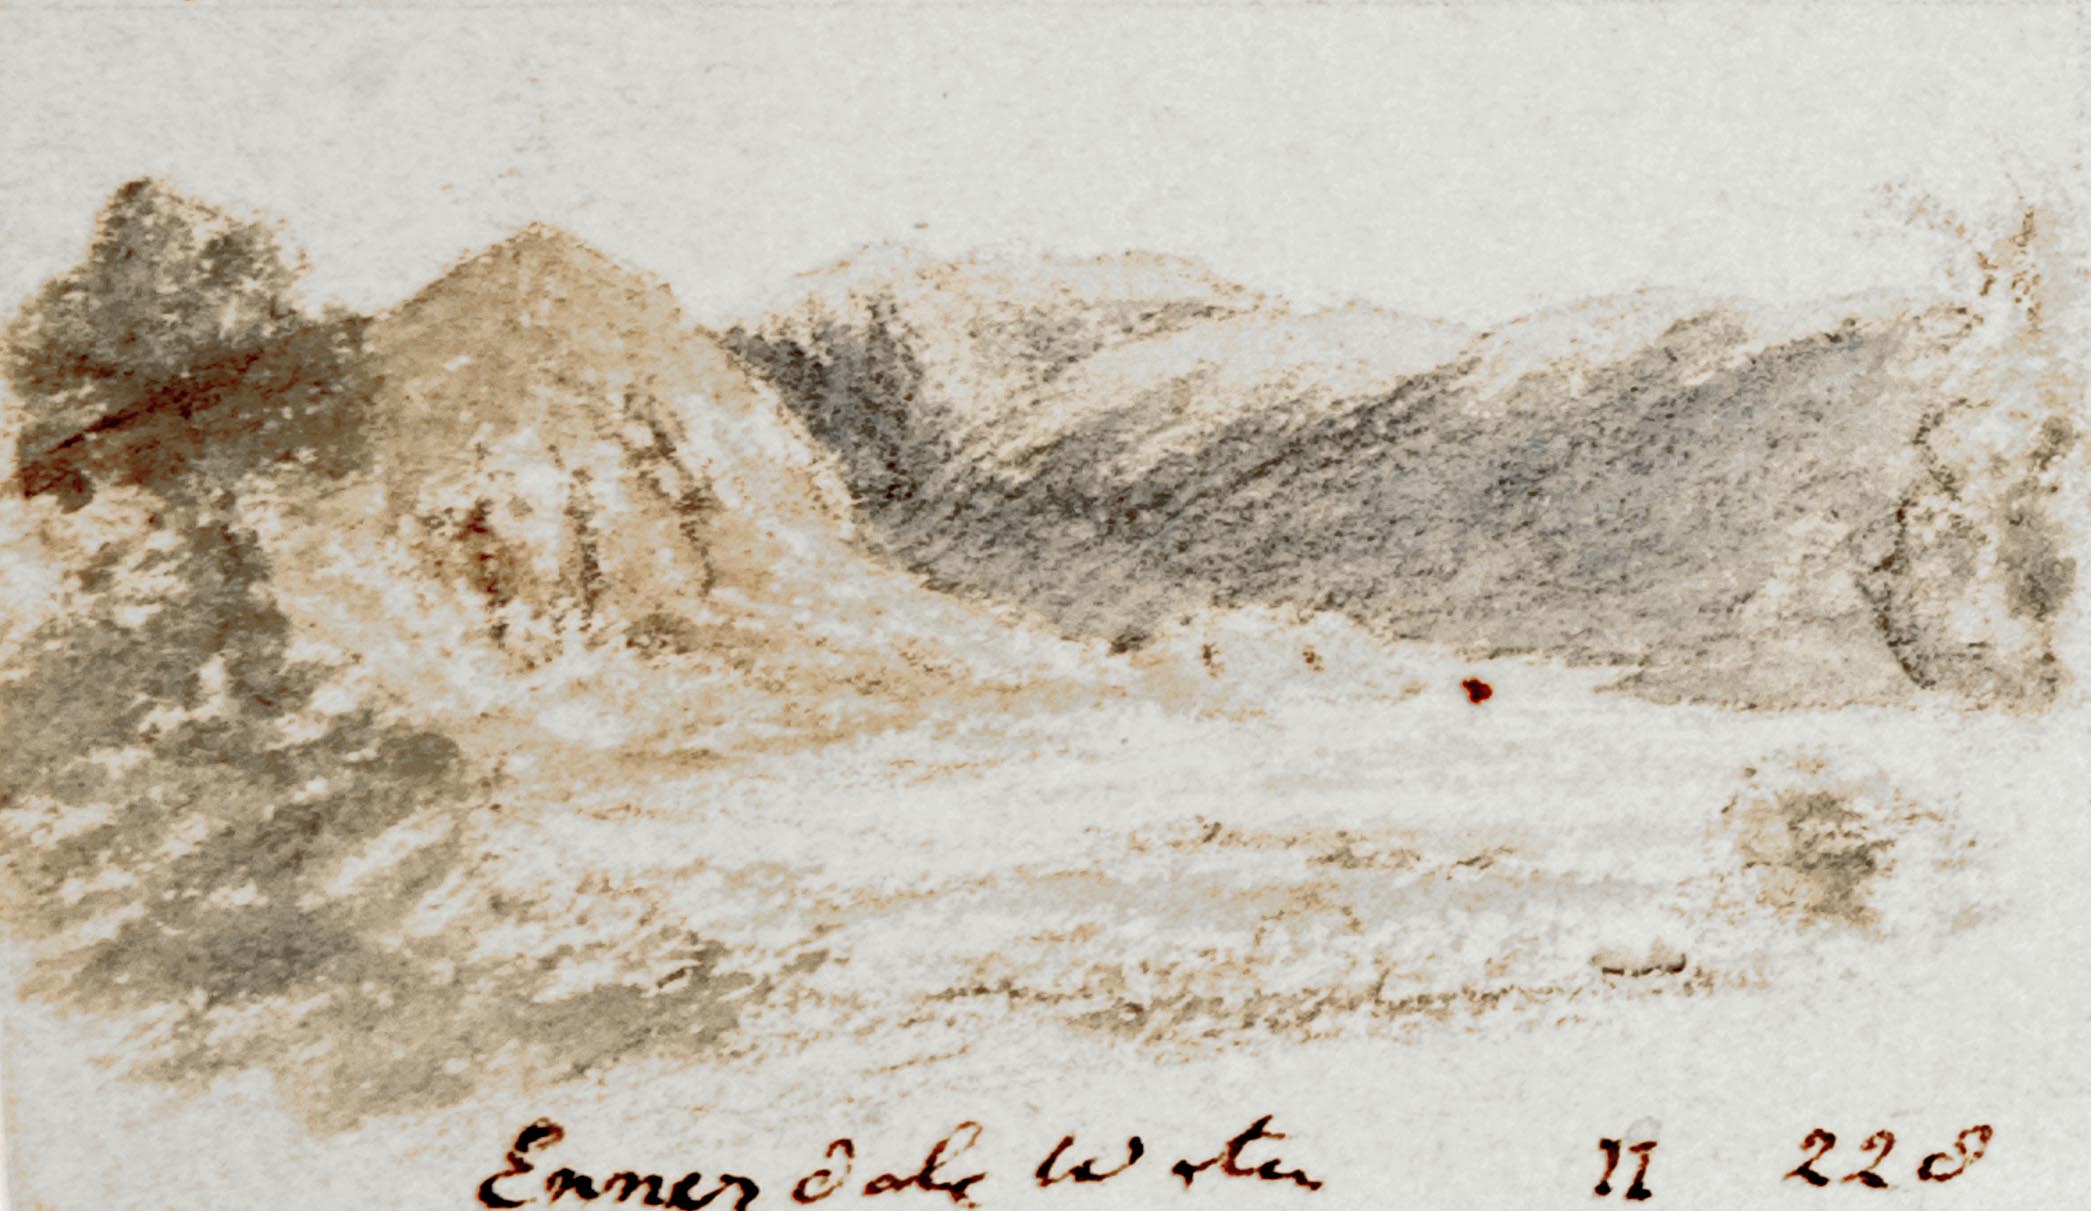 Ennerdale Water II 228